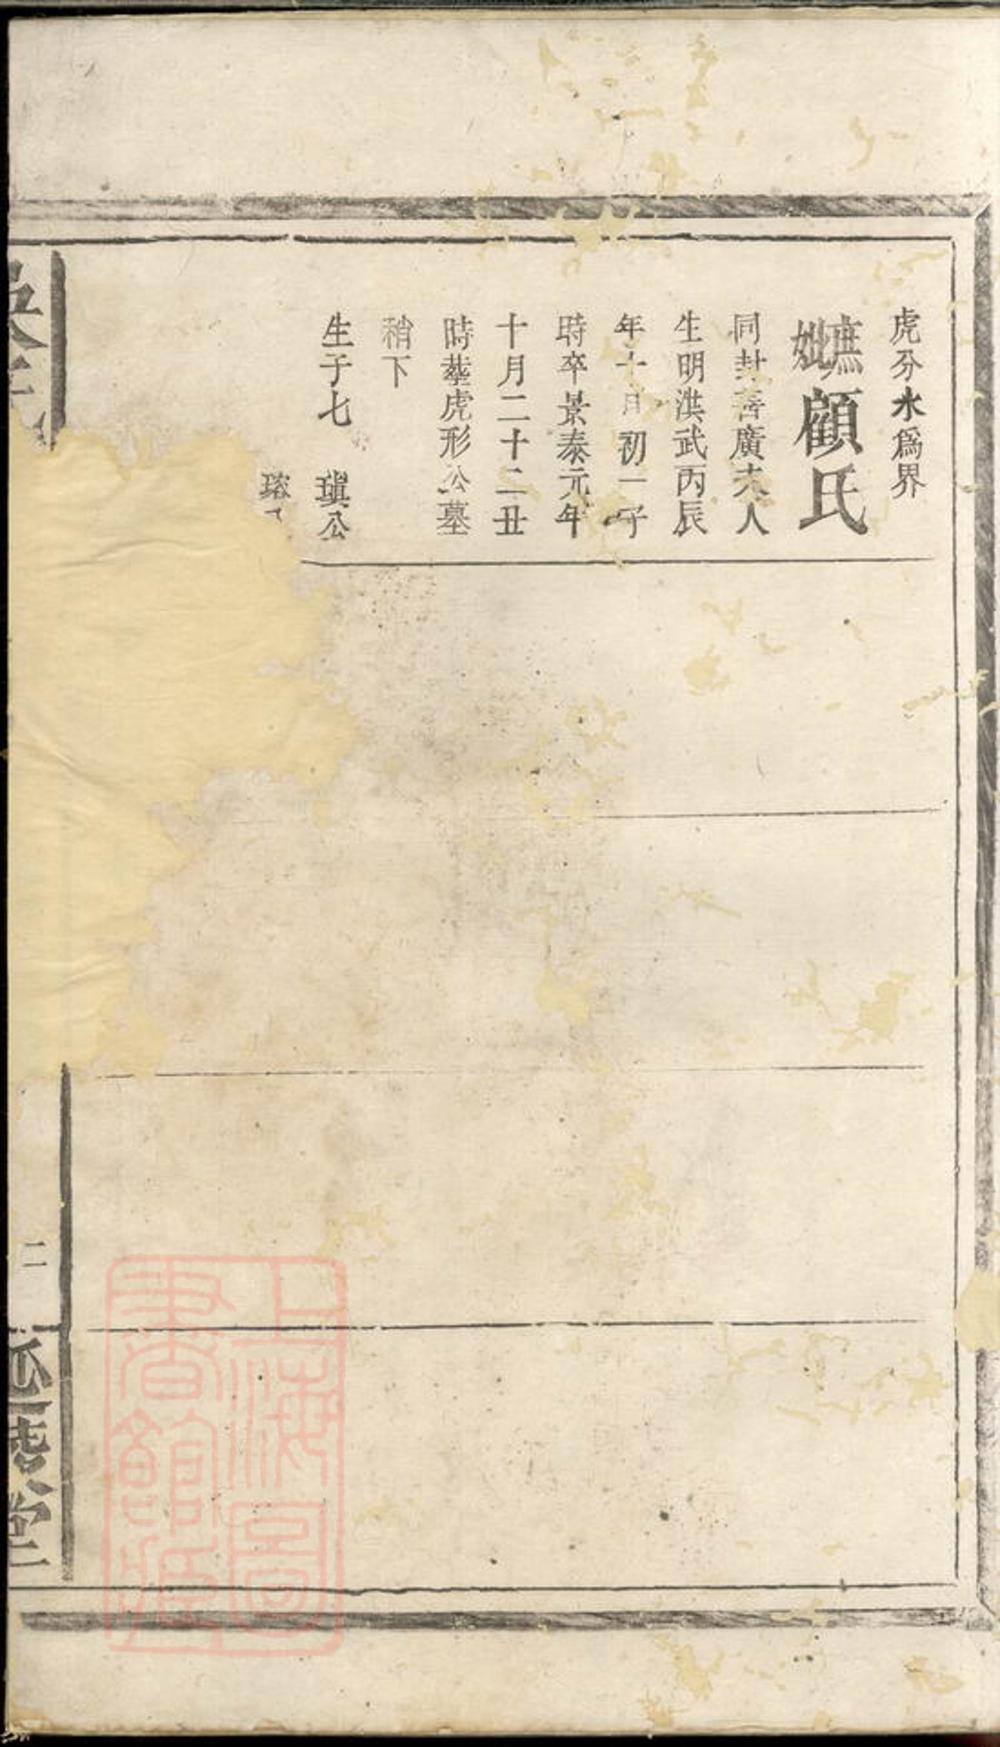 虎分水爲界
庶妣顧氏
同封善廣夫人
生明洪武丙辰
年十月初一子
時卒景泰元年
十月二十二丑
時塟虎形公墓
稍下
生子七 瑱公
瑢
卷
二
堂
上海圖書館藏